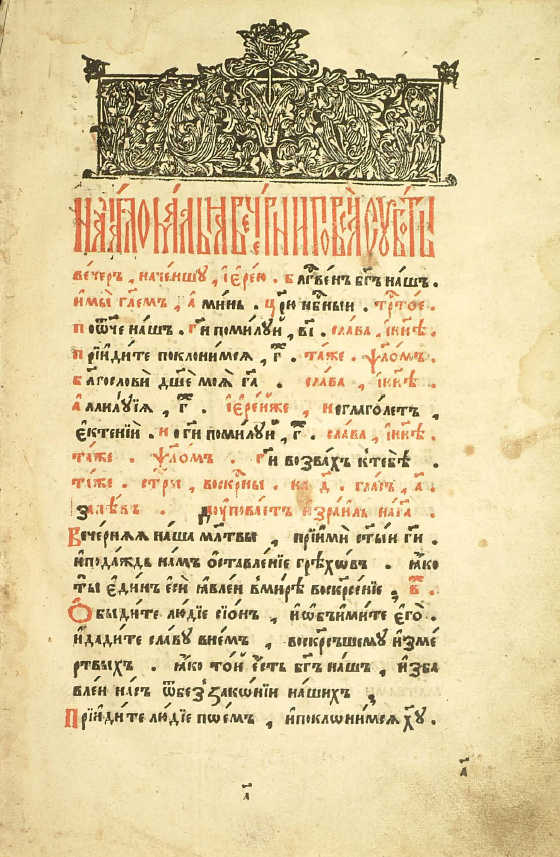 НАЧАЛО МАЛЫА ВЕЧЕРНИ ПОВСѦ СУБОТЫ
вечеръ, наченшу, і҆ере́ю. блгⷭ҇ве́нъ бг҃ъ на́шъ.
и҆мы̀ гл҃емъ, а҆ми́нь. цр҃ю нбⷭ҇ныи. трⷭ҇тое.
поѿче на́шъ. гⷭ҇и поми́луй, в҃і. сла́ва, і҆ ны́нѣ.
прїиди́те поклони́мсѧ, г҃. та́же. ѱло́мъ.
благословѝ дш҃е моѧ̀ гⷭ҇а. сла́ва, і҆ ны́нѣ.
а҆ллилꙋ́їѧ, г҃. і҆ере́й же, не глаго́летъ,
є҆ктенїи. но гⷭ҇и поми́луй, г҃. сла́ва, і҆ ны́нѣ.
та́же. ѱало́мъ. гⷭ҇и возва́хъ к тебѣ̀.
та́же. стр҃ы, воскрⷭ҇ны. на д҃. гла́съ, а҃.
запѣ́въ. да ѹпова́етъ і҆зра́иль на гⷭ҇а.
Вече́рнѧѧ на́ша мл҃твы, прїимѝ ст҃ы́и гⷭ҇и.
и҆пода́ждь на́мъ ѡ҆ставле́нїе грѣхо́въ. ꙗ҆́ко
ты̀ є҆ди́нъ є҆сѝ ꙗ҆вле́и в ми́рѣ воскресе́нїе, в҃.
Ѻ҆быди́те лю́дїе сїѡ́нъ, и҆ѡ҆б̾ыми́те є҆го̀.
и҆дади́те сла́вꙋ в не́мъ, воскрⷭ҇шему и҆зме́
ртвыхъ. ꙗ҆́ко то́и є҆́сть бг҃ъ на́шъ, и҆зба
вле́и на́съ ѿбеззако́нїи на́шихъ,
Прїиди́те лю́дїе пое́мъ, и҆поклони́мсѧ хрⷭ҇ту.
а҃
а҃